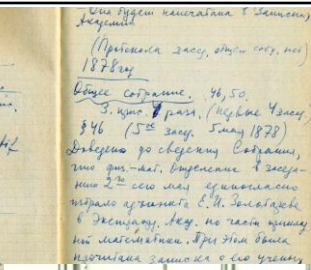 Она будет напечатана в Записках
Академии
(Протокола засед. общего собр. нет)
1878 год
Общее собрание. 46, 50.
З. прис. раза. (первые 4 засед.
§ 46 (5ое засед. 5 мая 1878)
Доведено до сведения Собрания,
что физ.-мат. Отделение в заседа-
нии 2го сего мая единогласно
избрало адъюнкта Е. И. Золотарева
в Экстраорд. Акад. по части приклад
ной математики. При этом была
прочитана записка о его ученых